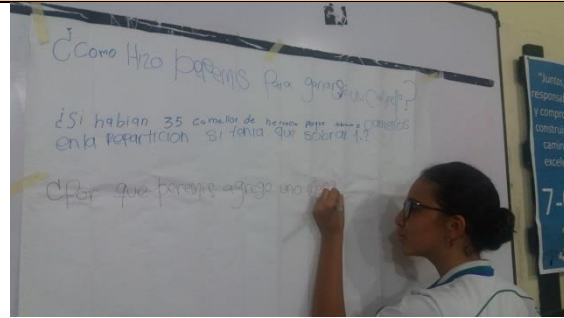 ¿Como Hizo beremis para ganarse un Camello?
¿Si habian 35 camellos de herencia porque
en la reparticion si tenia que sobrar 1.?
¿Por que beremis agrego uno
"Juntos
responsa
y compro
construi
camin
excele
7-